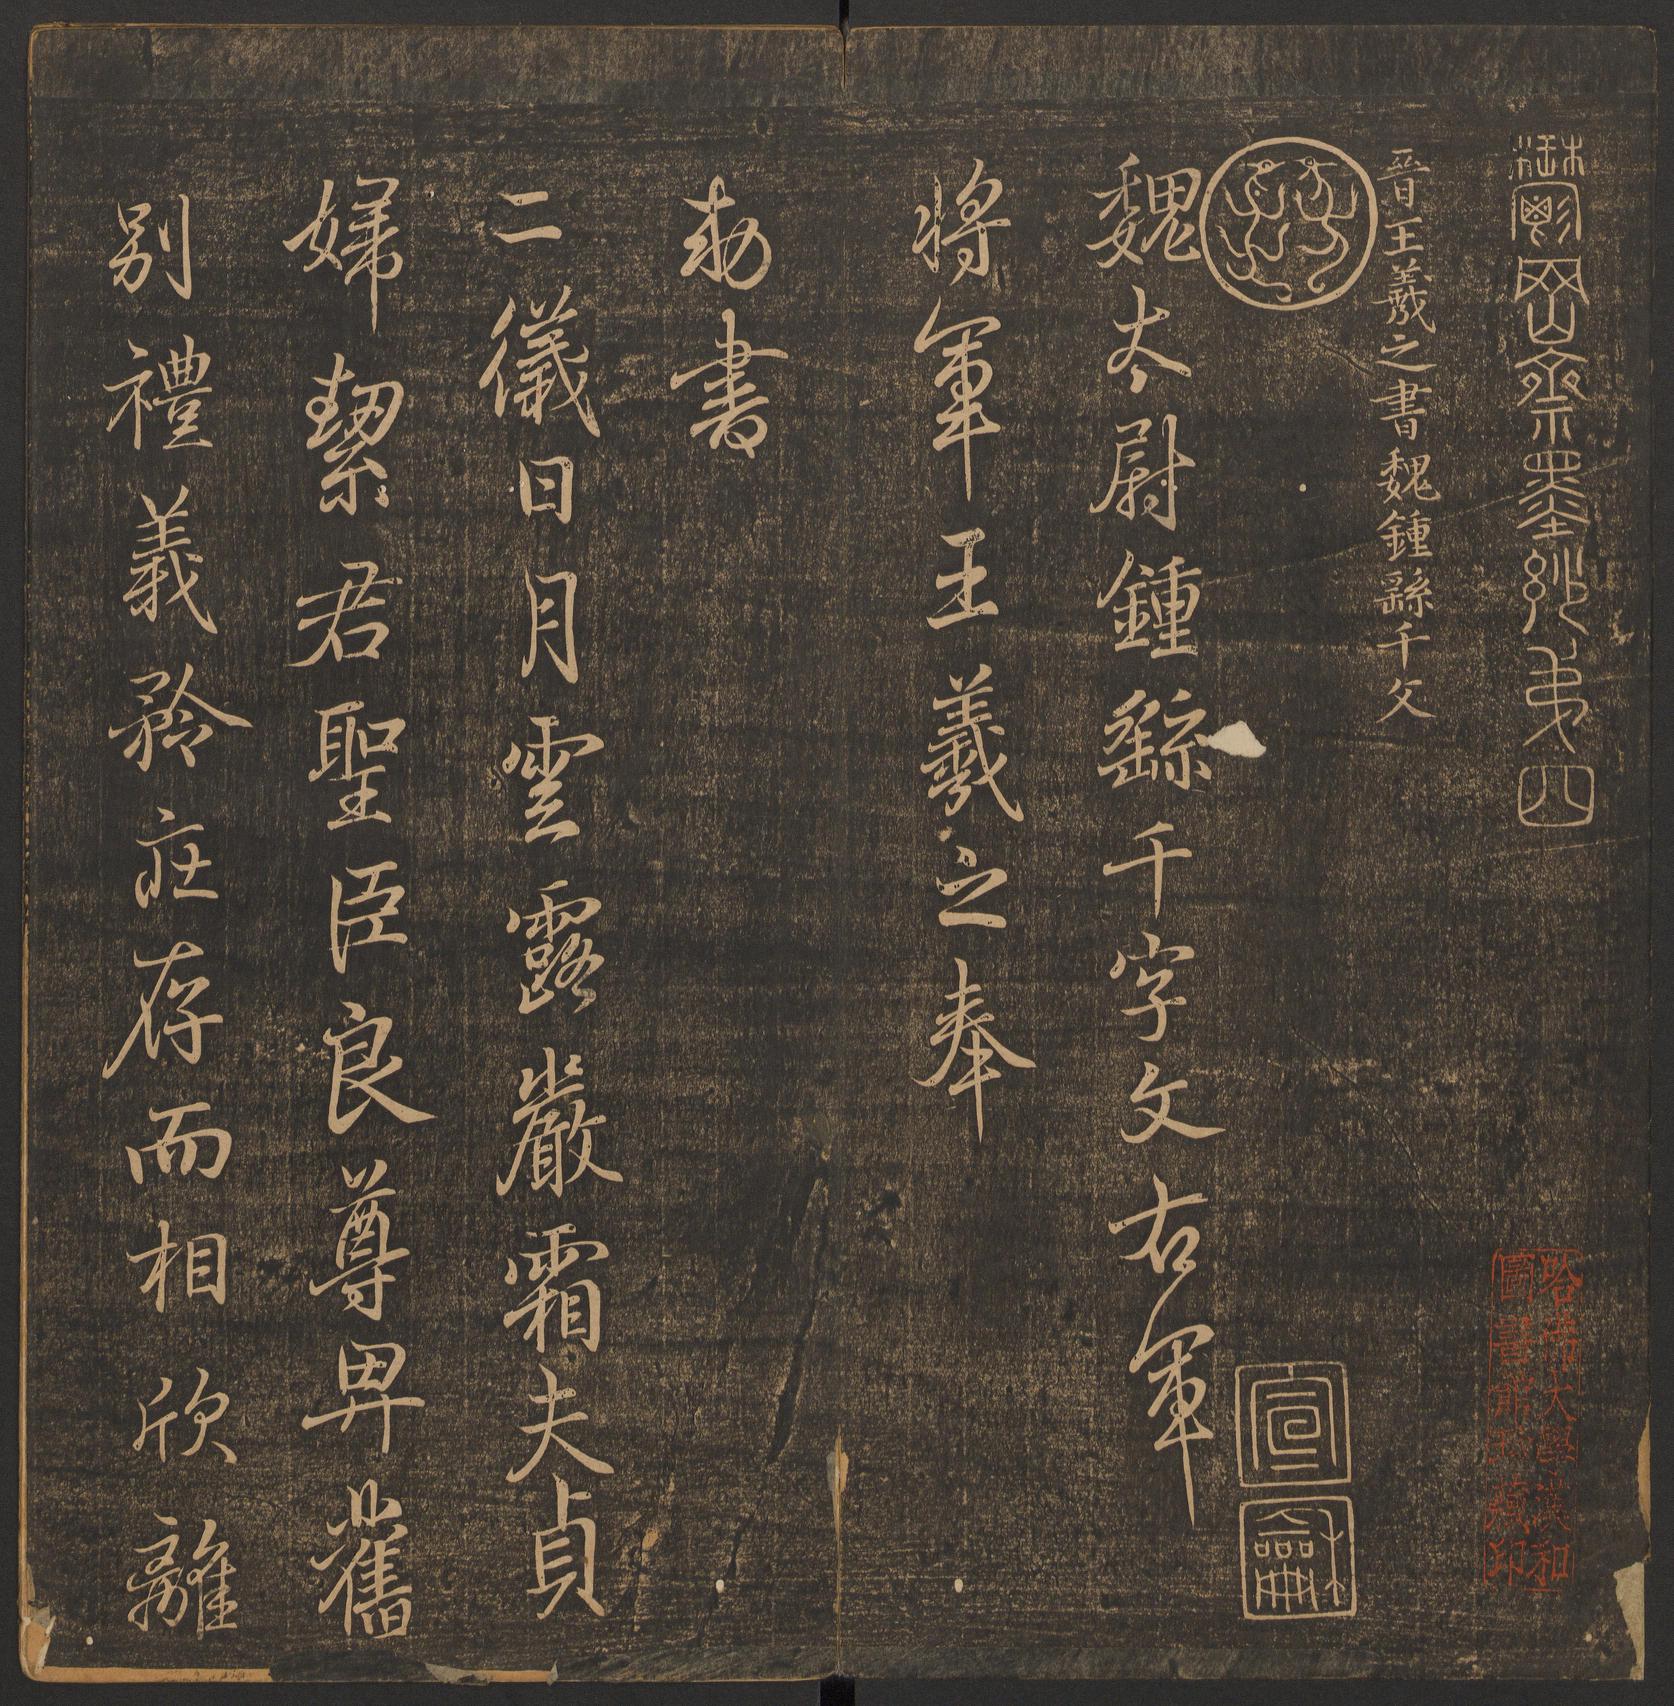 鬱岡齋墨妙弟四
晉王羲之書魏鍾繇千文
魏太尉鍾繇千字文右軍
將軍王羲之奉
勑書
二儀日月雲露嚴霜夫貞
婦絜君聖臣良尊卑舊
別禮義矜莊存而相欣離
宣
龢
哈佛大學漢和
圖書館珍藏印